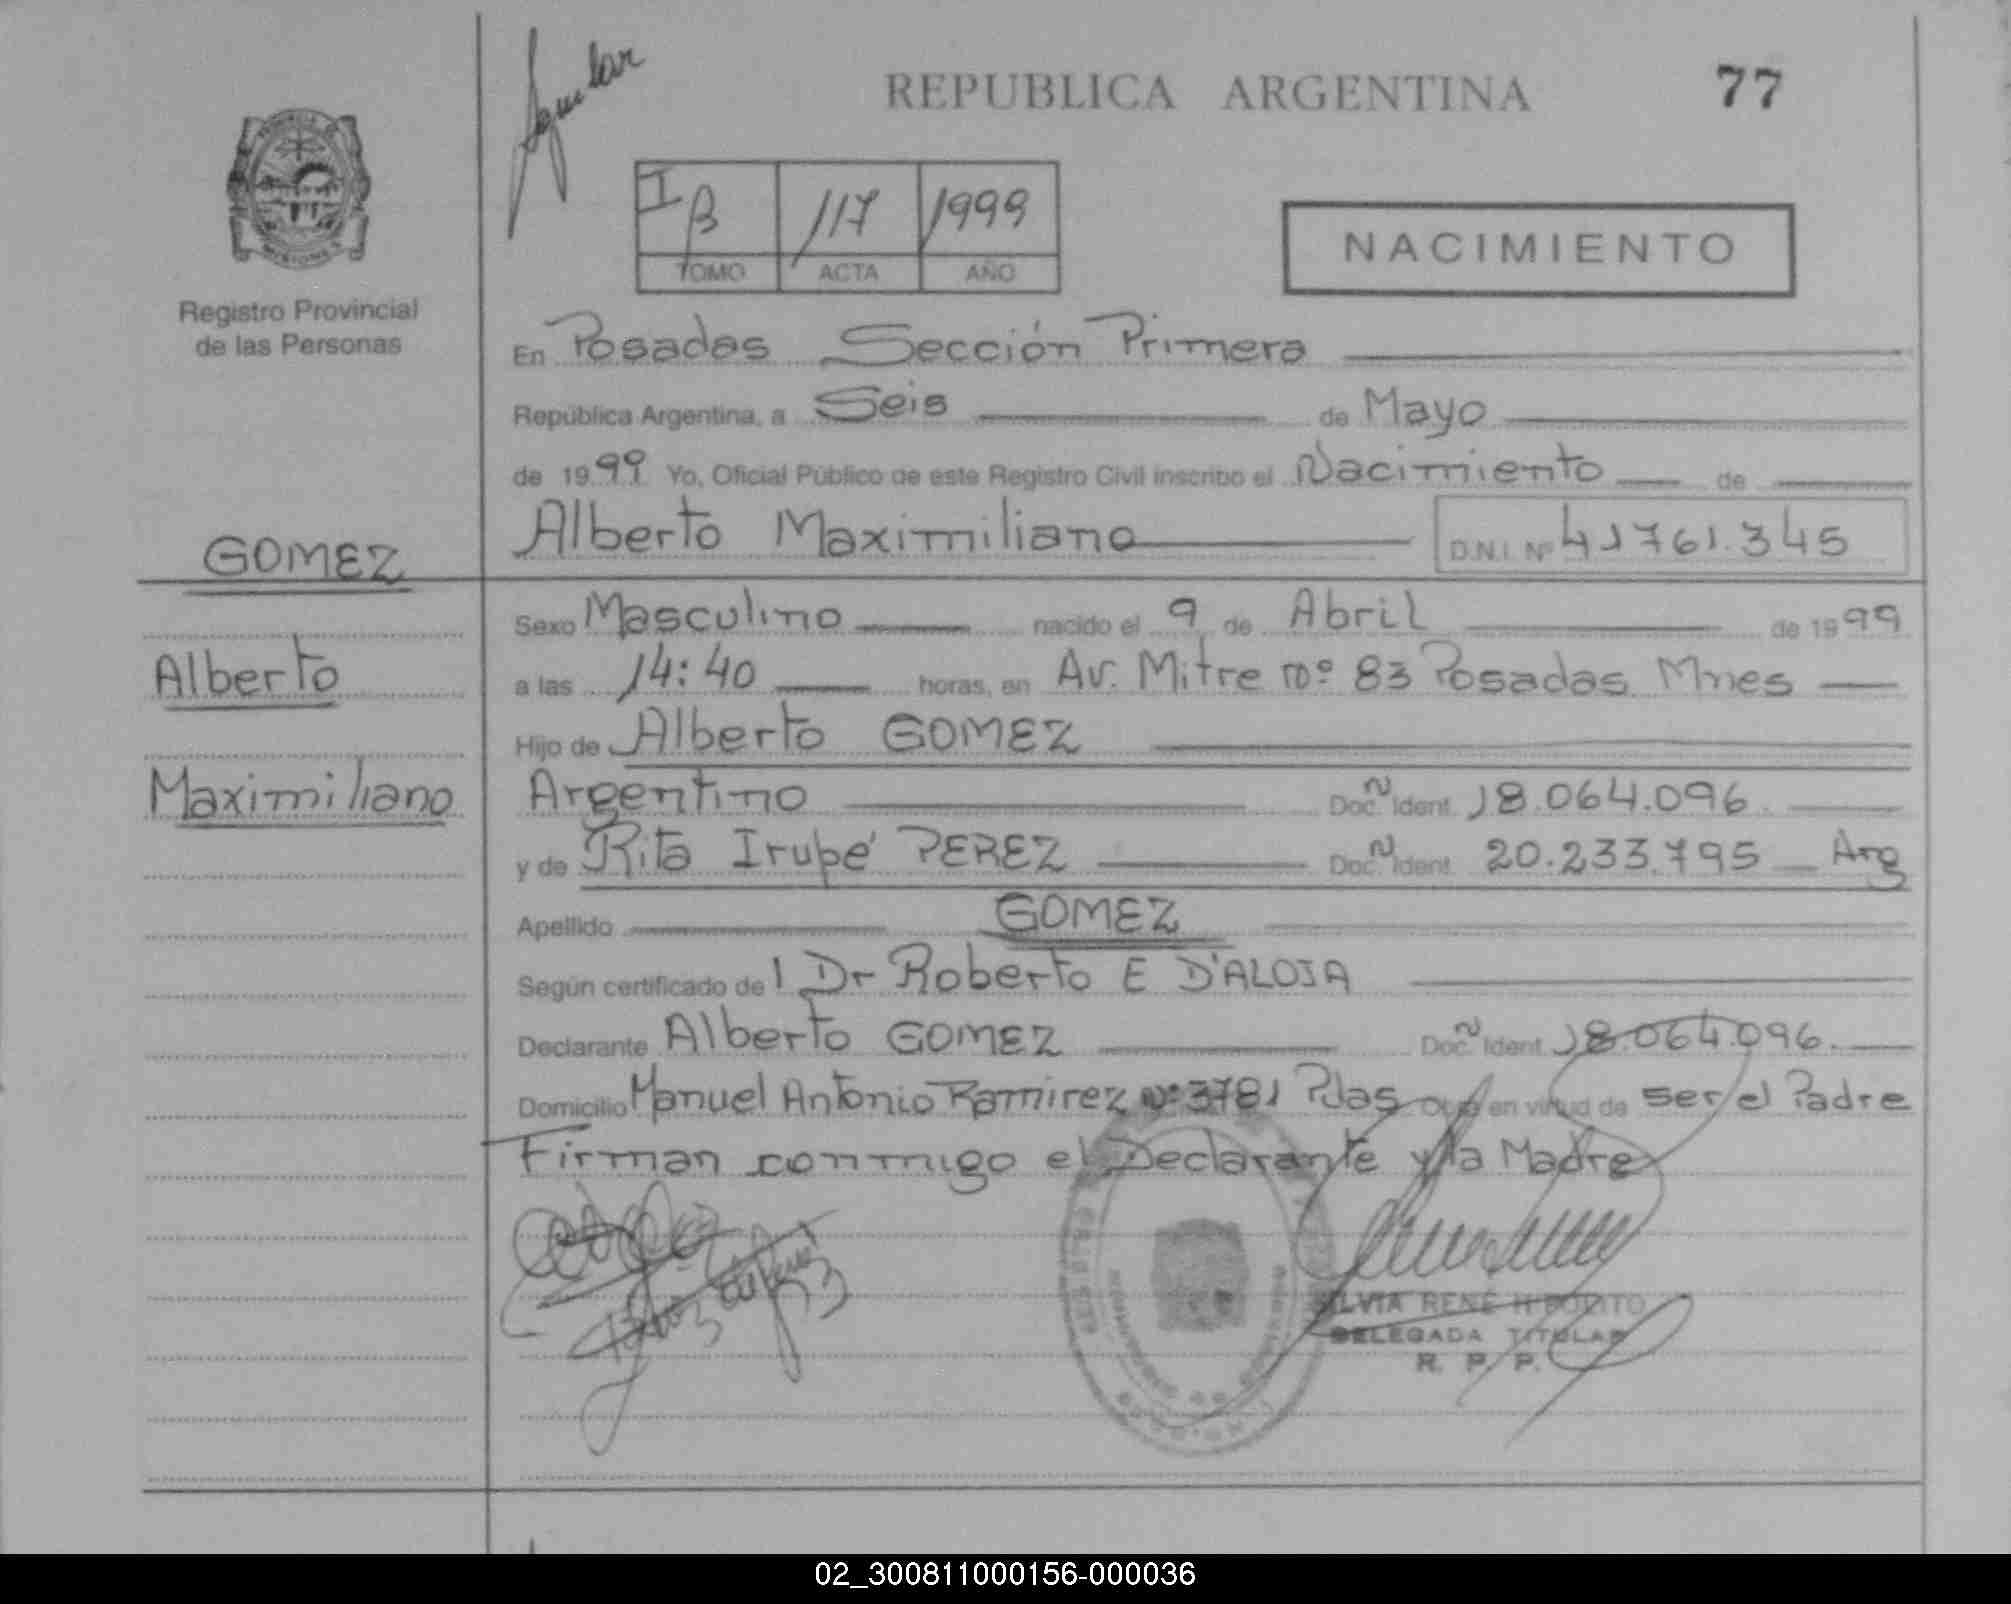 Aguilar
REPUBLICA ARGENTINA 77
I B 117 1999
TOMO ACTA AÑO
NACIMIENTO
Registro Provincial
de las Personas
En Posadas Sección Primera
República Argentina, a Seis de Mayo
de 1999 Yo, Oficial Público de este Registro Civil inscribo el Nacimiento de
GOMEZ
Alberto Maximiliano D.N.I. Nº 41761.345
Sexo Masculino nacido el 9 de Abril de 1999
Alberto
a las 14:40 horas, en Av. Mitre nº 83 Posadas Mnes
Hijo de Alberto GOMEZ
Maximiliano
Argentino Doc. Ident. 18.064.096
y de Rita Irupé PEREZ Doc. Ident. 20.233.795 Arg
Apellido GOMEZ
Según certificado del Dr Roberto E D'ALOJA
Declarante Alberto GOMEZ Doc. Ident. 18.064.096.
Domicilio Manuel Antonio Ramirez Nº 3781 Pdas Obra en virtud de ser el Padre
Firman conmigo el Declarante y la Madre
SILVIA RENÉ HIPOLITO
DELEGADA TITULAR
R. P. P.
02_300811000156-000036